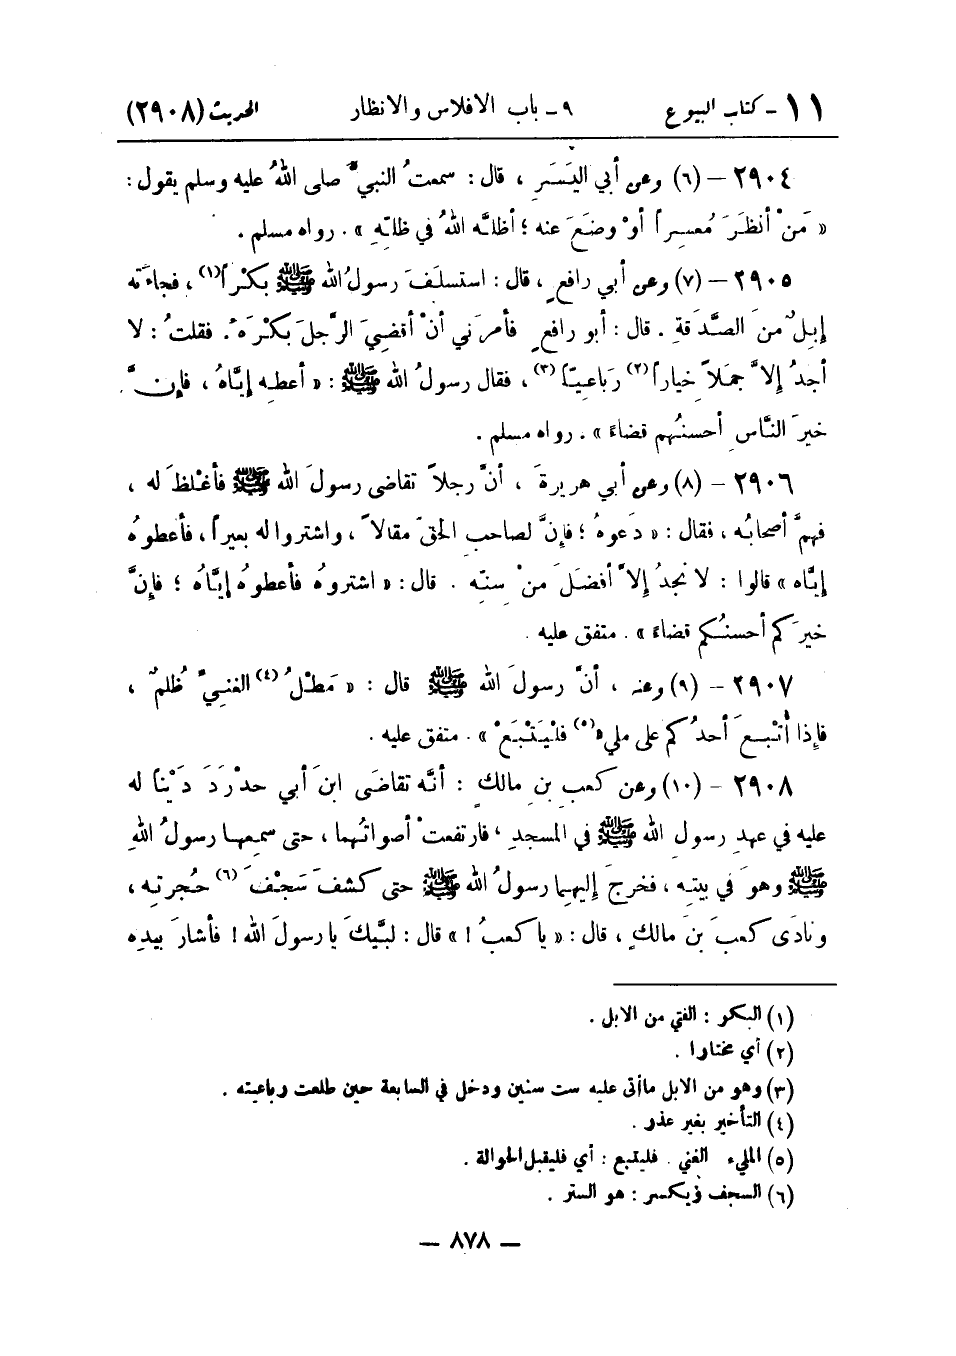 ١١ - كتاب البيوع ٩ - باب الافلاس والانظار الحديث (٢٩٠٨)
٢٩٠٤ - (٦) وعن أبي اليَسَرِ ، قال : سمعتُ النبيَّ صلى اللهُ عليه وسلم يقول :
« مَنْ أنظَرَ مُعسِراً أوْ وضَعَ عنه ؛ أظلَّه اللهُ في ظلِّهِ » . رواه مسلم .
٢٩٠٥ - (٧) وعن أبي رافعٍ ، قال : استسلَفَ رسولُ الله ﷺ بَكْراً(١) ، فجاءَته
إبِلٌ منَ الصَّدَقةِ . قال : أبو رافعٍ فأمرَني أنْ أقضيَ الرَّجلَ بَكْرَهُ . فقلتُ : لا
أجدُ إلاَّ جمَلاً خِياراً(٢) رَباعيّاً(٣) ، فقال رسولُ الله ﷺ : « أعطِه إيَّاهُ ، فإنَّ
خيرَ النَّاسِ أحسنُهم قضاءً » . رواه مسلم .
٢٩٠٦ - (٨) وعن أبي هريرةَ ، أنَّ رجلاً تقاضى رسولَ الله ﷺ فأغْلظَ له ،
فهمَّ أصحابُه ، فقال : « دَعوهُ ؛ فإنَّ لصاحبِ الحقِّ مقالاً ، واشتروا له بعيراً ، فأعطوهُ
إيَّاه » قالوا : لا نجدُ إلاَّ أفضلَ منْ سِنِّه . قال : « اشتروهُ فأعطوهُ إيَّاهُ ؛ فإنَّ
خيرَكم أحسنُكم قضاءً » . متفق عليه .
٢٩٠٧ - (٩) وعنه ، أنَّ رسولَ الله ﷺ قال : « مَطْلُ(٤) الغنيِّ ظُلمٌ ،
فإذا أُتْبِعَ أحدُكم على مليءٍ(٥) فلْيَتْبَعْ » . متفق عليه .
٢٩٠٨ - (١٠) وعن كعبِ بنِ مالكٍ : أنَّه تقاضَى ابنَ أبي حدْرَدَ دَيْناً له
عليه في عهدِ رسولِ الله ﷺ في المسجدِ ، فارتفعتْ أصواتُهما ، حتى سمِعها رسولُ اللهِ
ﷺ وهوَ في بيتِه ، فخرجَ إليهما رسولُ الله ﷺ حتى كشفَ سَجْفَ(٦) حُجرتِه ،
ونادَى كعبَ بنَ مالكٍ ، قال : « يا كعبُ ! » قال : لبَّيكَ يا رسولَ الله ! فأشارَ بيدِه
(١) البكر : الفتي من الابل .
(٢) أي مختارا .
(٣) وهو من الابل ما أتى عليه ست سنين ودخل في السابعة حين طلعت رباعيته .
(٤) التأخير بغير عذر .
(٥) المليء الغني . فليتبع : أي فليقبل الحوالة .
(٦) السجف ويكسر : هو الستر .
— ٨٧٨ —